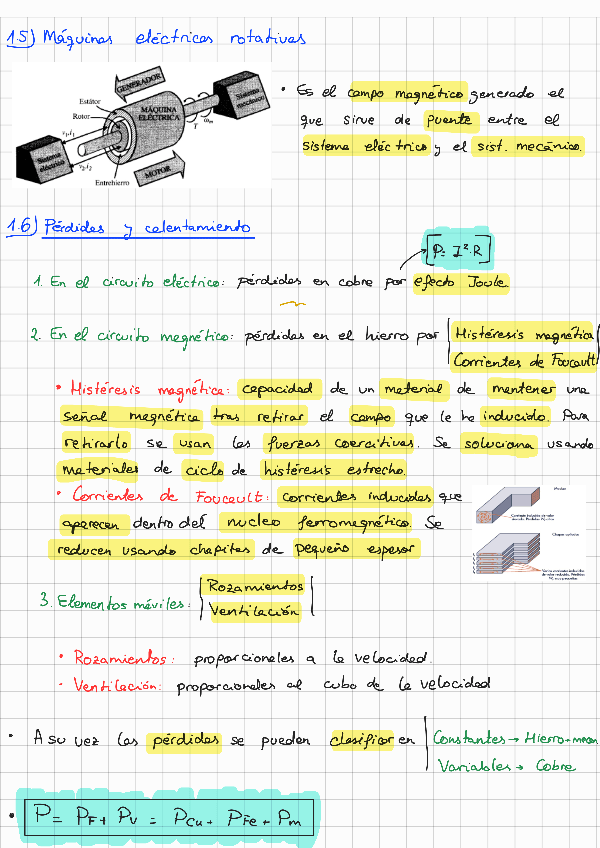 1.5) Máquinas eléctricas rotativas
GENERADOR
Estátor
Rotor
MÁQUINA
ELÉCTRICA
Sistema
mecánico
v₁,i₁
T
ωm
Sistema
eléctrico
v₂,i₂
MOTOR
Entrehierro
• Es el campo magnético generado el
que sirve de puente entre el
sistema eléctrico y el sist. mecánico.
1.6) Pérdidas y calentamiento
P= I²·R
1. En el circuito eléctrico: pérdidas en cobre por efecto Joule
2. En el circuito magnético: pérdidas en el hierro por | Histéresis magnética
Corrientes de Foucault
• Histéresis magnética: capacidad de un material de mantener una
señal magnética tras retirar el campo que le ha inducido. Para
retirarlo se usan las fuerzas coercitivas. Se soluciona usando
materiales de ciclo de histéresis estrecho.
• Corrientes de Foucault: corrientes inducidas que
aparecen dentro del nucleo ferromagnético. Se
reducen usando chapitas de pequeño espesor
3. Elementos móviles: | Rozamientos
Ventilación
• Rozamientos: proporcionales a la velocidad.
· Ventilación: proporcionales al cubo de la velocidad
• A su vez las pérdidas se pueden clasificar en | Constantes → Hierro+mecan
Variables → Cobre
• P = PF + PV = PCu + PFe + Pm